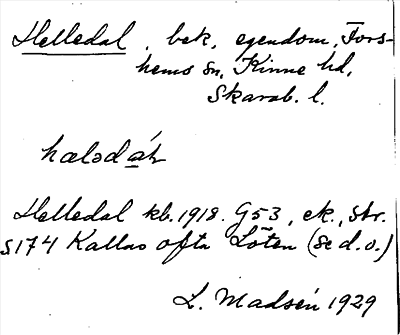 Helledal, bek. egendom, Fors-
hems sn, Kinne hd,
Skarab. l.
hælədáḷ
Helledal kb. 1918. G53, ek., str.
S174 Kallas ofta Löten (se d. o.)
L. Madsén 1929